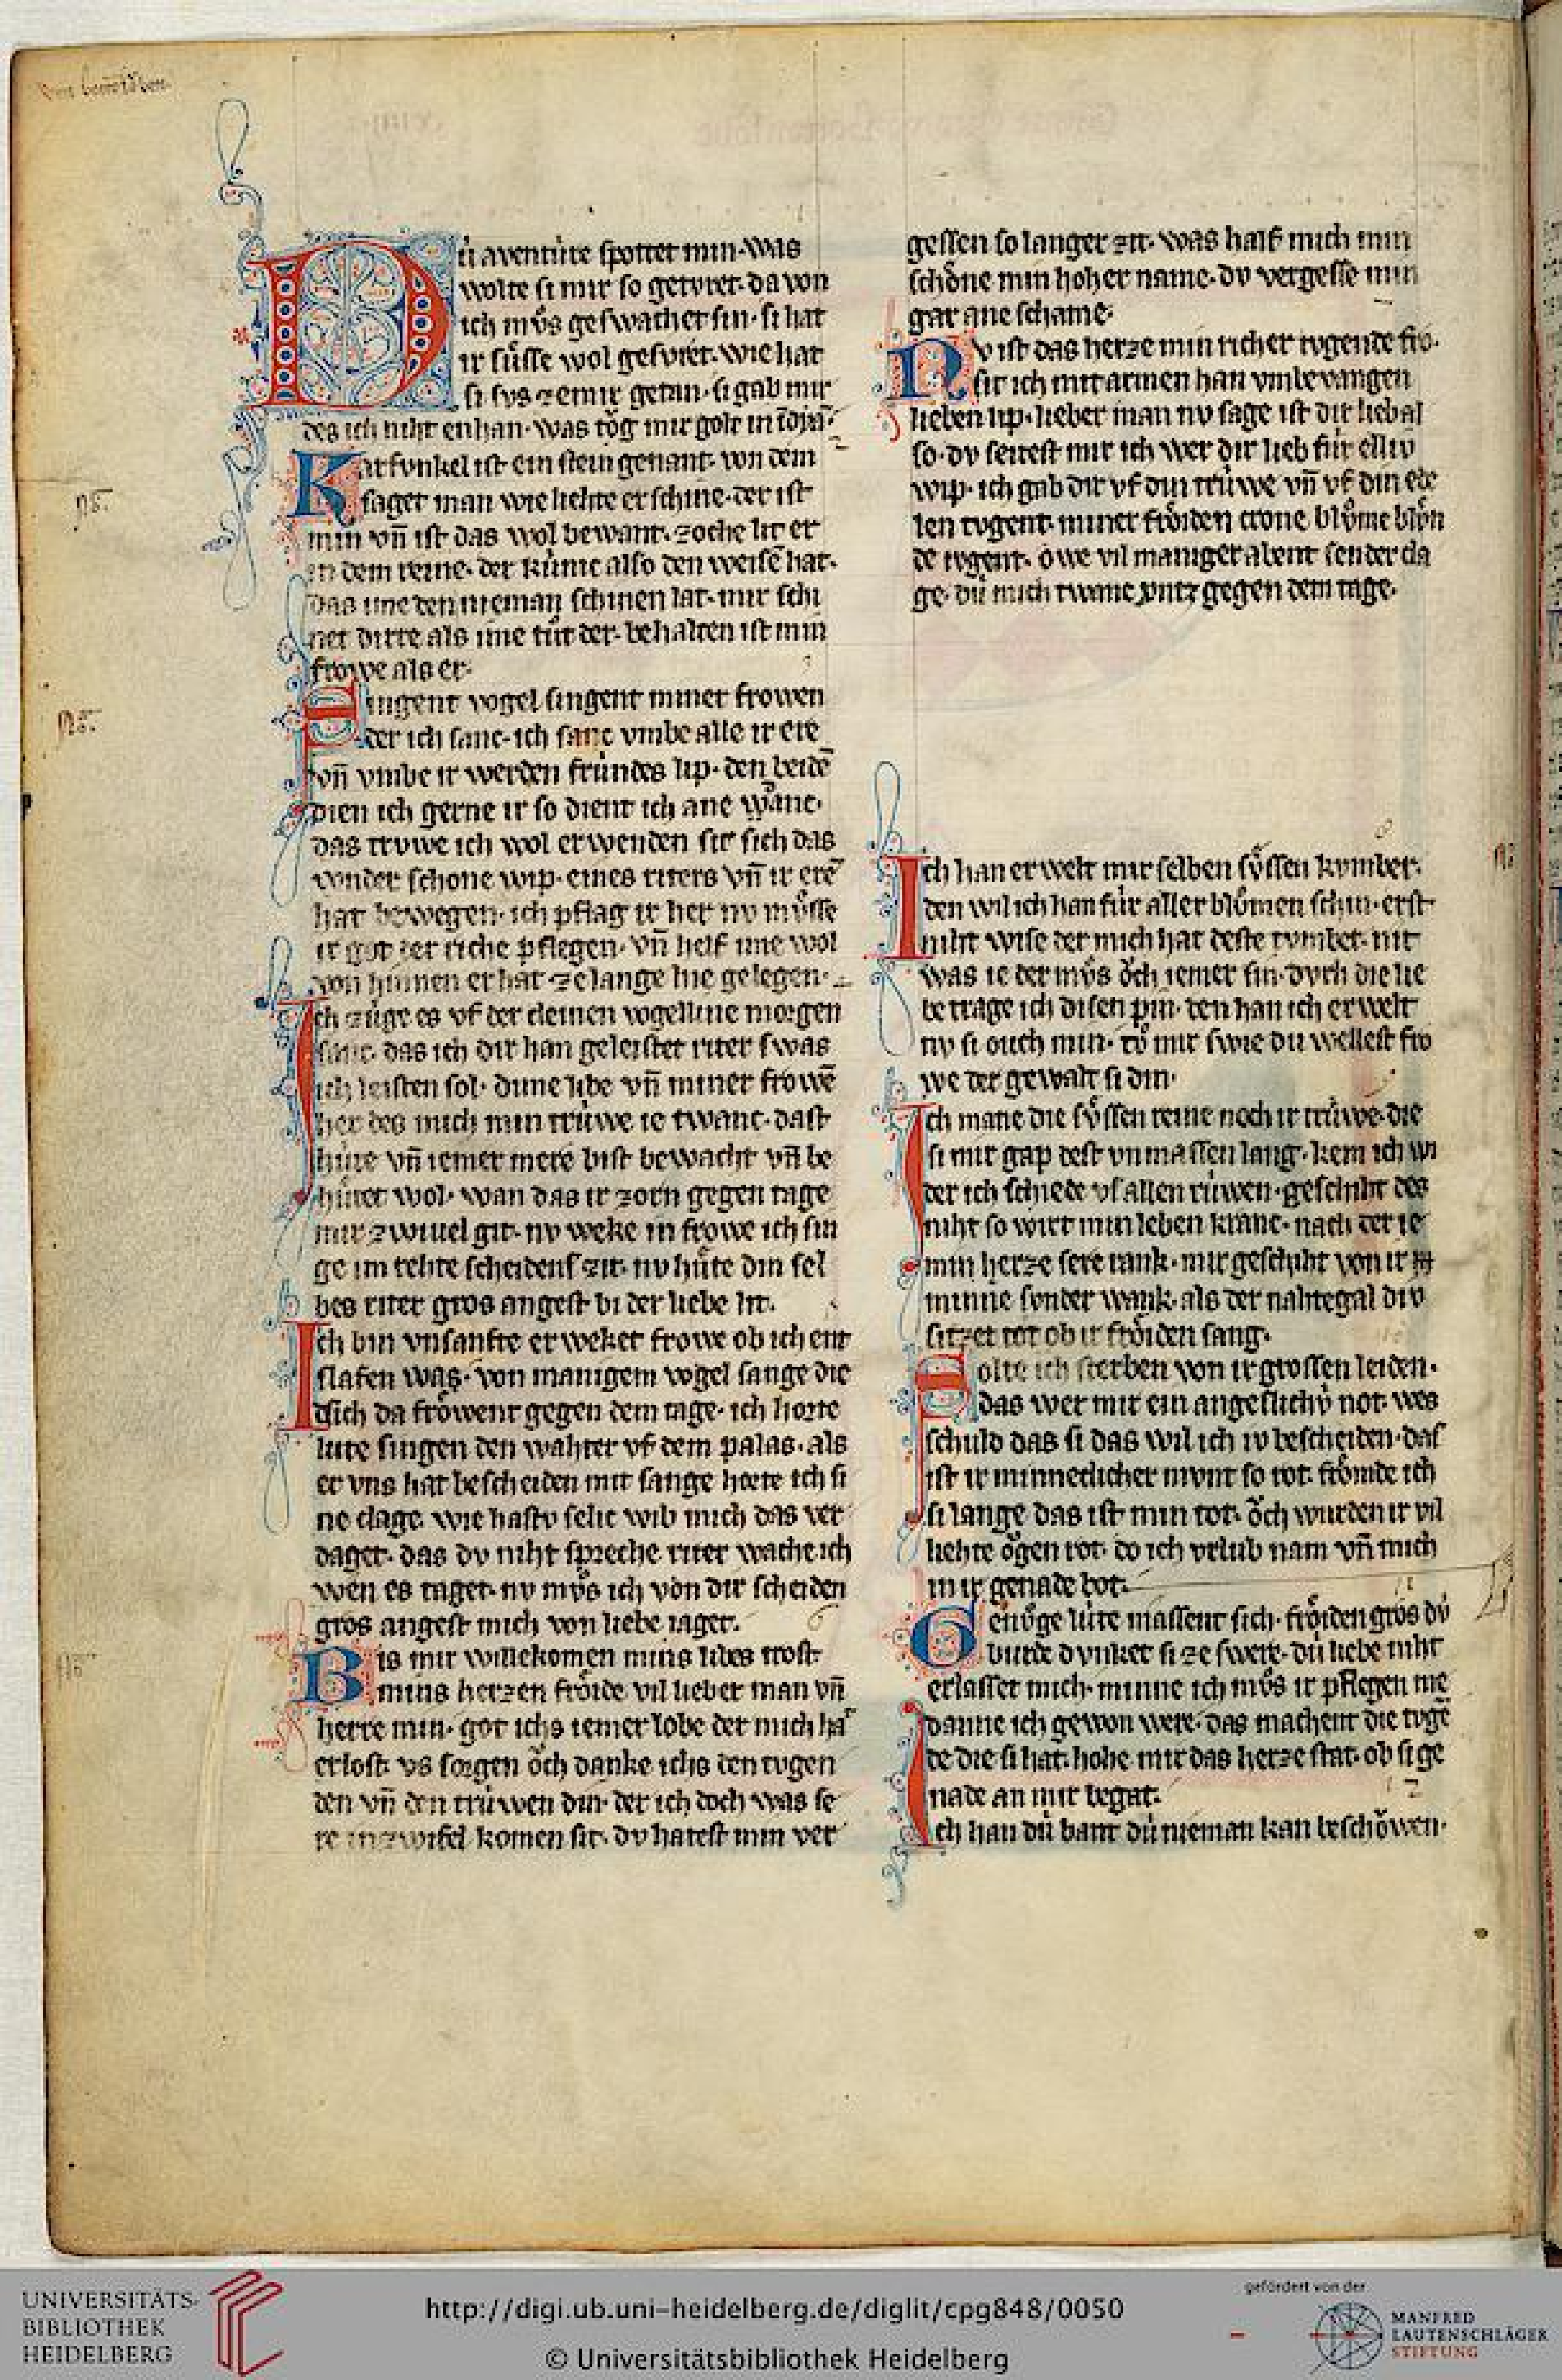 Dú aventúre spottet min· was
wolte si mir so getvret· da von
ich mv̊s geswachet sin· si hat
ir sússe wol gefvret· wie hat
si svs ze mir getan· si gab mir
des ich niht enhan· was tög mir golt in
Karfvnkel ist ein stein genant· von dem
saget man wie liehte er schine· der ist
min vn̄ ist das wol bewant· zoche lit er
in dem reine· der kúnic also den weisē hat·
das ime den nieman schinen lat· mir schi
net dirre als ime tůt der· behalten ist min
frowe als er·
Singent vogel singent miner frowen
der ich sanc· ich sanc vmbe alle ir ere
vn̄ vmbe ir werden frúndes lip· den beidē
dien ich gerne ir so dient ich ane wanc·
das trvwe ich wol erwenden sit sich das
wnder schone wip· eines riters vn̄ ir erē
hat bewegen· ich pflag ir her nv mv̊sse
ir got der riche pflegen· vn̄ helf ime wol
von hinnen er hat ze lange hie gelegen·
Ich zúge es vf der cleinen vogelline morgen
sanc· das ich dir han geleistet riter swas
ich leisten sol· dime libe vn̄ miner frowē
her des mich min trúwe ie twanc· dast
húte vn̄ iemer mere bist bewacht vn̄ be
hůtet wol· wan das ir zorn gegen tage
mir zwiuel git· nv weke in frowe ich sin
ge im rehte scheidens zit· nv hůte din sel
bes riter gros angest bi der liebe lit.
Ich bin vnsanfte erweket frowe ob ich ent
slafen was· von manigem vogel sange die
sich da frőwent gegen dem tage· ich horte
lute singen den wahter vf dem palas· als
er vns hat bescheiden mit sange horte ich si
ne clage. wie hastv selic wib mich das ver
daget· das dv niht spreche riter wache ich
wen es taget· nv mv̊s ich von dir scheiden
gros angest mich von liebe iaget.
Bis mir willekomen mins libes trost
mins herzen frőide vil lieber man vn̄
herre min· got ichs iemer lobe der mich hat
erlost· vs sorgen őch danke ichs den tvgen
den vn̄ den trúwen din· der ich doch was se
re in zwifel komen sit· dv hatest min ver
gessen so langer zit· was half mich min
schőne min hoher name· dv vergesse min
gar ane schame·
Nv ist das herze min richer tvgende fro·
sit ich mit armen han vmbevangen
lieben lip· lieber man nv sage ist dir lieb al
so· dv seitest mir ich wer dir lieb fúr elliv
wip· ich gab dir vf din trúwe vn̄ vf din ede
len tvgent· miner frőiden crone blv̊me blv̊n
de ivgent· owe vil maniger abent sender cla
ge· dú mich twanc vntz gegen dem tage.
Ich han erwelt mir selben sv̊ssen kvmber·
den wil ich han fúr aller blůmen schin· erst
niht wise der mich hat deste tvmber· nit
was ie der mv̊s őch iemer sin· dvrh die lie
be trage ich disen pin· den han ich erwelt
nv si ouch min· tv̊ mir swie du wellest fro
we der gewalt si din·
Ich mane die sv̊ssen reine noch ir trúwe· die
si mir gap dest vnmassen lang· kem ich wi
der ich schiede vs allen rúwen· geschiht des
niht so wirt min leben kranc· nach der ie
min herze sere rank· mir geschiht von ir
minne svnder wank· als der nahtegal div
sitzet tot ob ir frőiden sang·
Solte ich sterben von ir grossen leiden·
das wer mir ein angeslichv́ not· wes
schuld das si das wil ich iv bescheiden· das
ist ir minneclicher mvnt so rot· frőmde ich
si lange das ist min tot· őch wurden ir vil
liehte őgen rot· do ich vrlub nam vn̄ mich
in ir genade bot·
Genv̊ge lúte massent sich· frőiden gros dv́
burde dvnket si ze swere· dú liebe niht
erlasset mich· minne ich mv̊s ir pflegen me
danne ich gewon were· das machent die tvgē
de die si hat· hohe mir das herze stat· ob si ge
nade an mir begat·
Ich han dú bant dú nieman kan beschőwen·
UNIVERSITÄTS-
BIBLIOTHEK
HEIDELBERG
http://digi.ub.uni-heidelberg.de/diglit/cpg848/0050
© Universitätsbibliothek Heidelberg
gefördert von der
MANFRED
LAUTENSCHLÄGER
STIFTUNG